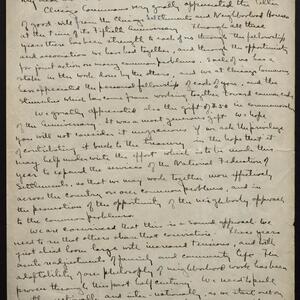 Chicago Commons very greatly appreciated the letter
of good will from the Chicago Settlements and Neighborhood Houses
at the time of its Fiftieth Anniversary. Through all these
years there has been strength to each of us through the fellowship
and association we have had together, and through the opportunity
for joint action on many common problems. Each of us has a
stake in the work done by the others, and we at Chicago Commons
have appreciated the personal fellowship of each of you and the
stimulus which has come from working together toward common ends.
We greatly appreciated also the gift of $50 in commemoration
of the anniversary. It was a most generous gift. We hope
you will not consider it ungracious if we ask the privilege
of contributing it back to the treasury in the hope that it
may help underwrite the effort which is to be made this
year to expand the services of the National Federation of
Settlements, so that we may work together more effectively
across the country on our common problems, and in
the promotion of the opportunity of the neighborly approach
to the common problems.
We are convinced that this is a sound approach. We
need to see that others share that conviction. These years
just ahead loom large with increased tensions, and with
readjustments of family and community life. The
adaptability of our philosophy of neighborhood work has been
proven through this past half century. We need to pull